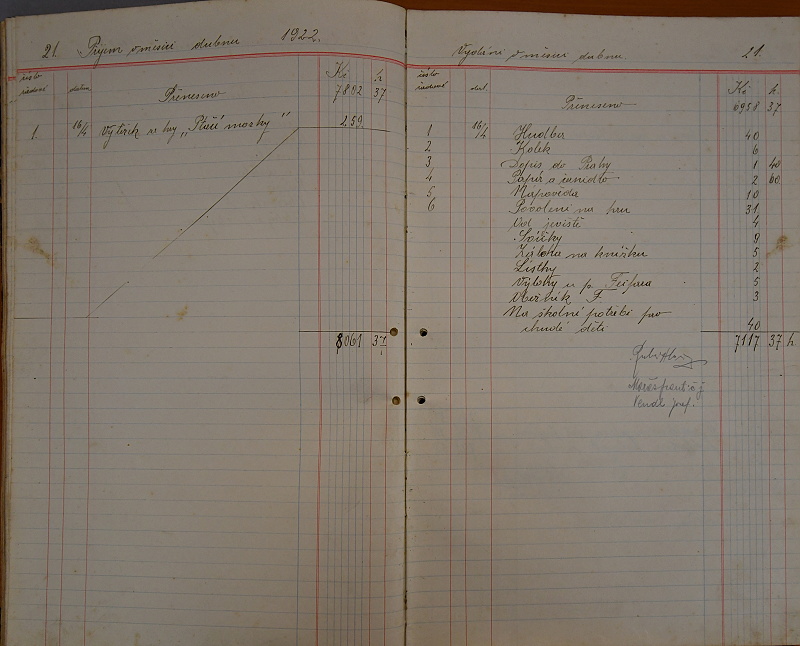 21. Příjem v měsíci dubnu 1922.
číslo řadové datum Kč h
Přeneseno 7802 37
1. 16/4 Výtěžek ze hry „Ptačí mozky" 259.
8061 37
Vydání v měsíci dubnu. 21.
číslo řadové dat. Kč h
Přeneseno 6958 37
1 16/4 Hudba 40
2 Kolek 6
3 Dopis do Prahy 1 40
4 Papír a čmidlo 2 60
5 Napověda 10
6 Povolení na hru 31
Od jeviště 4
Svíčky 9
Záloha na knížku 5
Lístky 2
Výlohy u p. 5
F. 3
Na školní potřebi pro
chudé děti 40
7117 37 h
Vendl Josef.